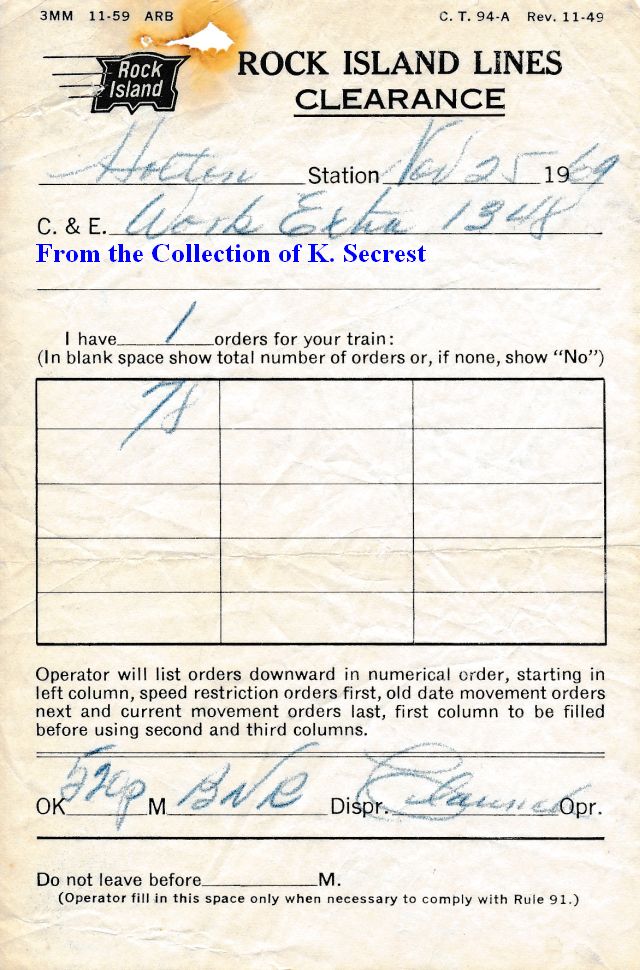 3MM 11-59 ARB C. T. 94-A Rev. 11-49
Rock Island
ROCK ISLAND LINES
CLEARANCE
Holten Station Nov 25 1969
C. & E. Work Extra 1348
From the Collection of K. Secrest
I have 1 orders for your train:
(In blank space show total number of orders or, if none, show "No")
78
Operator will list orders downward in numerical order, starting in
left column, speed restriction orders first, old date movement orders
next and current movement orders last, first column to be filled
before using second and third columns.
OK 520p M BNR Dispr. Opr.
Do not leave before M.
(Operator fill in this space only when necessary to comply with Rule 91.)